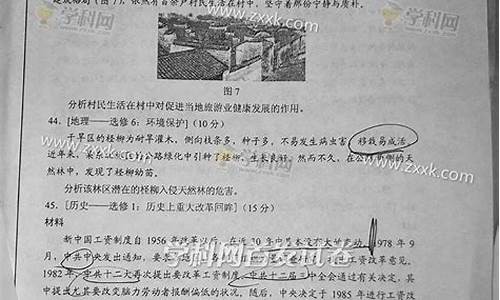 建成格局(图7),依然有百余户村民生活在村中,坚守着那份宁静与质朴。
图7
分析村民生活在村中对促进当地旅游业健康发展的作用。
44. [地理——选修6:环境保护](10分)
干旱区的柽柳为耐旱灌木,侧向枝条多,种子多,不易发生病虫害,移栽易成活。
近年来,某
林区
公路绿化中引种了柽柳,生长良好。然而不久,在公路
侧的天
然林中,发现了柽柳幼苗。
分析该林区潜在的柽柳入侵天然林的危害。
45. [历史——选修1:历史上重大改革回眸](15分)
材料
新中国工资制度自1956年改革以后,在近30年中基本没有大的变动。1978年9
月,中共中央发出通知,要
工资改革意见。
1982年,中共十二大再次提出要改革工资制度。中共十二届三中全会通过有关决定,其
中提出尤其要改变脑力劳动者报酬偏低的状况。随后,中央决定于1985年进行工资改
学科网
www.zxxk.com
学科网
www.zxxk.com
www.zxxk.com
学科网
www.zxxk.com
学科网首发试卷